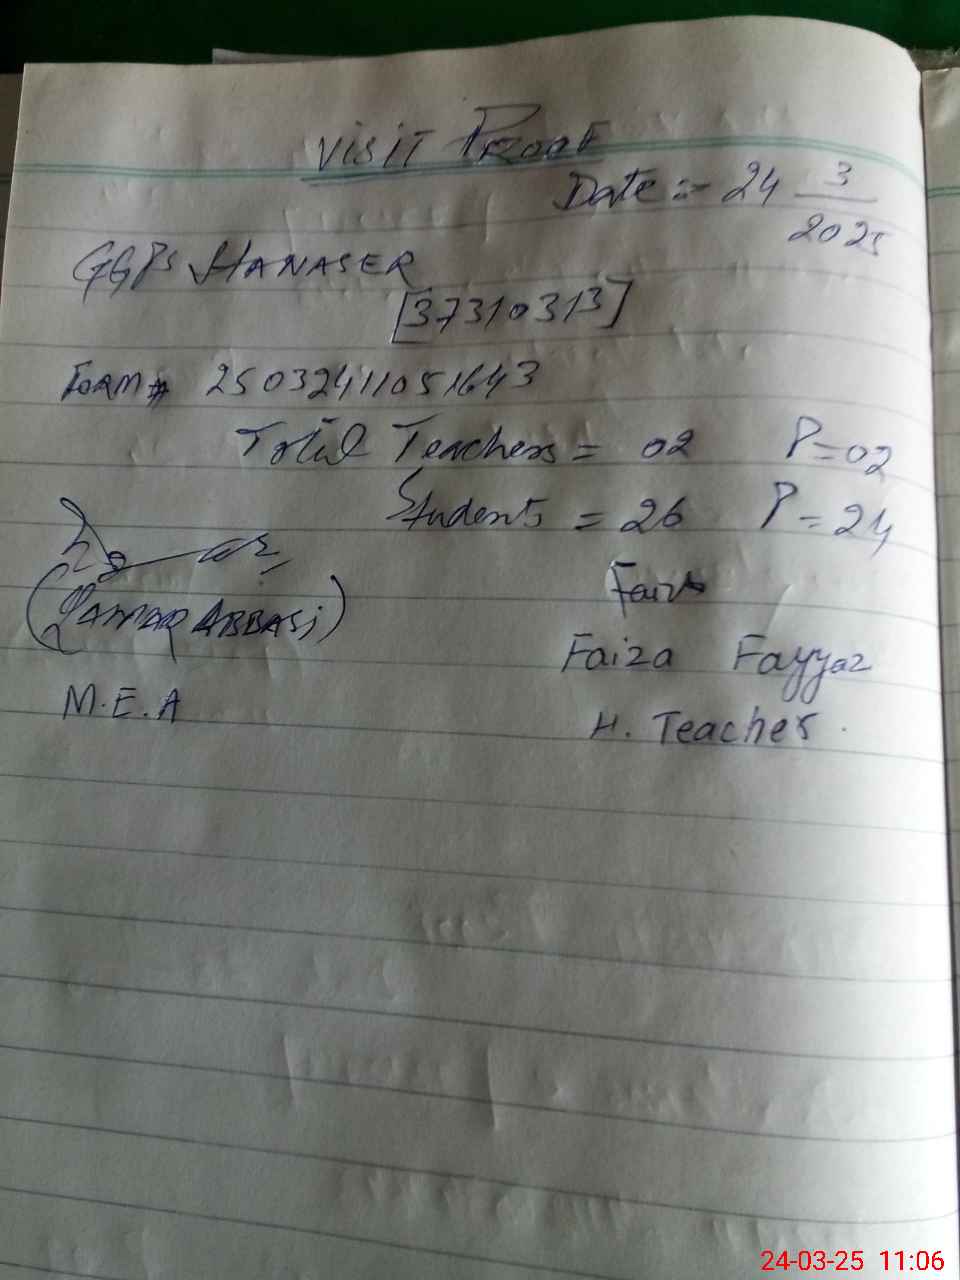 VISIT PROOF
Date :- 24 3/2025
GGPS HANASER
[37310313]
Form # 25032411051643
Total Teachers = 02 P=02
Students = 26 P=24
(QAMAR ABBASi)
Faiza
Faiza Fayyaz
M.E.A
H. Teacher.
24-03-25 11:06